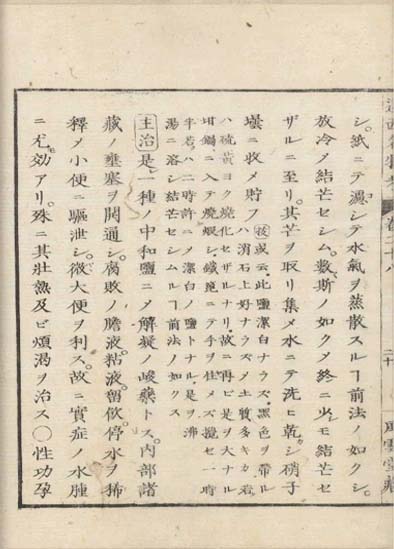 シ紙ニテ濕シテ水氣ヲ蒸散スルヿ前法ノ如クシ
放冷メ結芒セシム數斯ノ如クメ終ニ少モ結芒セ
ザルニ至リ其芒ヲ取リ集メ水ニテ洗ヒ乾シ硝子
壜ニ收メ貯フ
或云此鹽潔白ナラズ黑色ヲ帶ル
ハ消石上好ナラズメ土質多キカ若
ハ硫黃ヨク燒化セザルナリ故ニ再ビ是ヲ大ナル
坩鍋ニ入テ燒煅シ鐵箆ニテ手ヲ住メズ攪セ一時
半若ハ二時許ニメ潔白ノ鹽トナル是ヲ沸
湯ニ溶シ結芒セシムルヿ前法ノ如クス
主治是一種ノ中和鹽ニメ解凝ノ峻藥トス內部諸
藏ノ壅塞ヲ開通シ腐敗ノ膽液粘液留飮停水ヲ稀
釋メ小便ニ驅泄シ微大便ヲ利ス故ニ實症ノ水腫
ニ尤効アリ殊ニ其壯熱及ビ煩渴ヲ治ス〇性功孕